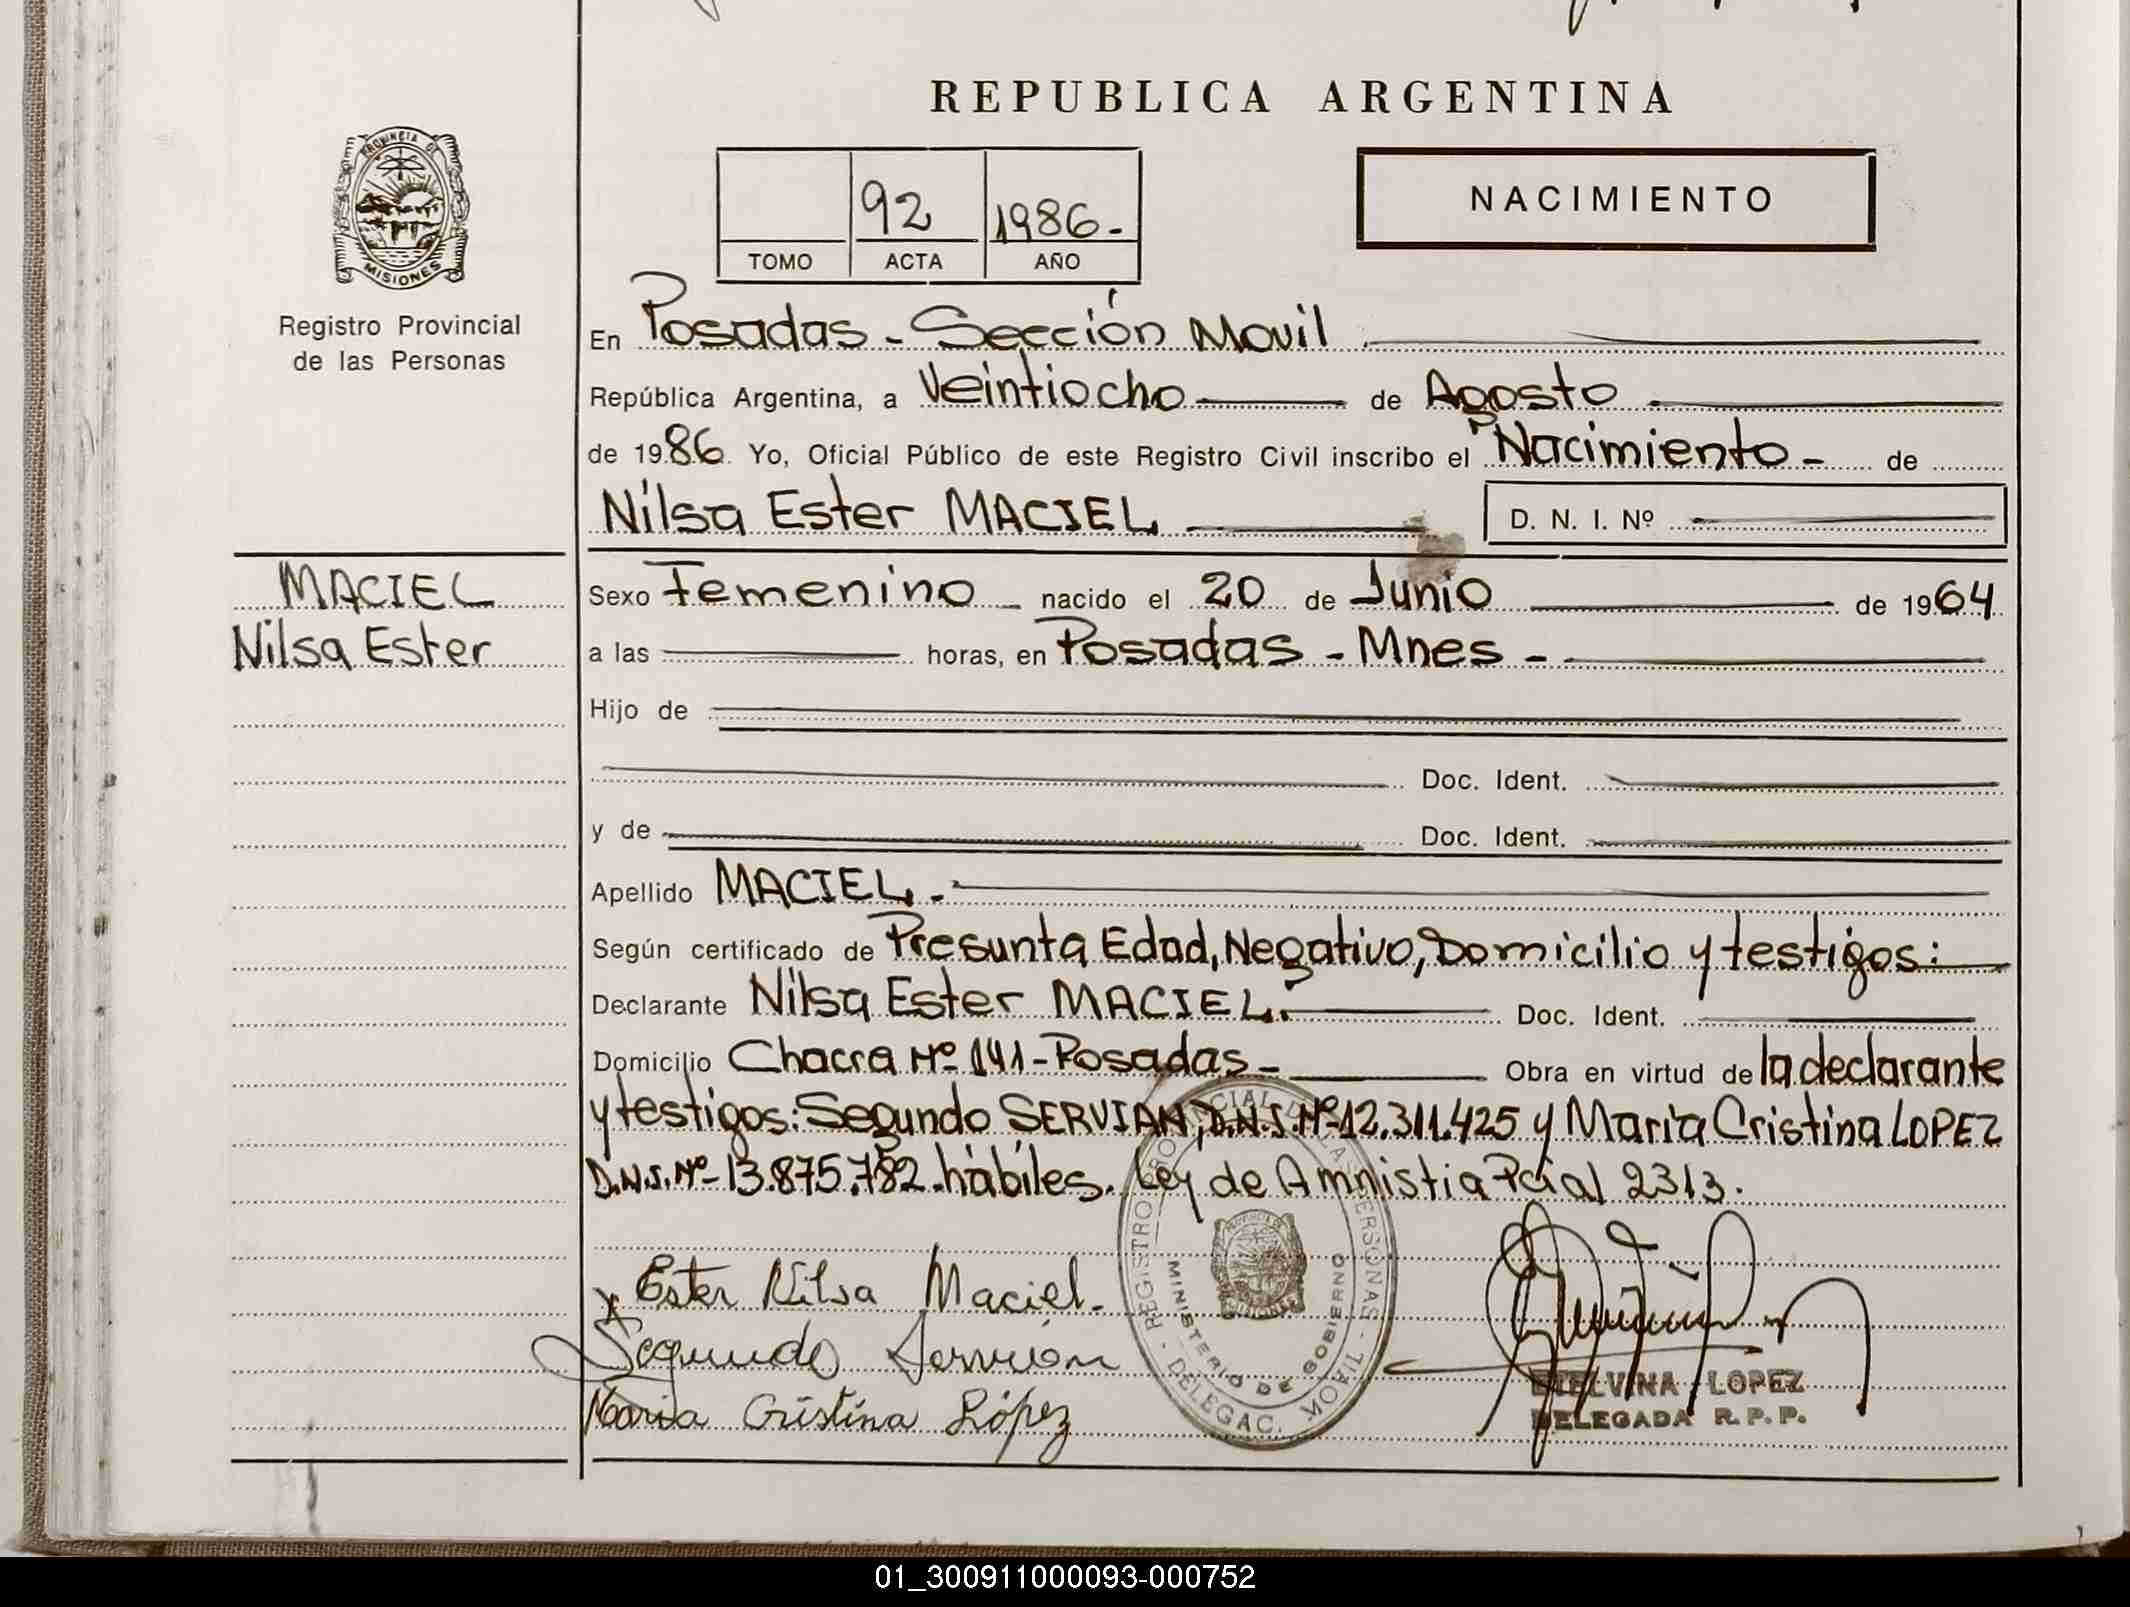 REPUBLICA ARGENTINA
PROVINCIA DE
MISIONES
Registro Provincial
de las Personas
92 1986.-
TOMO ACTA AÑO
NACIMIENTO
En Posadas - Sección Movil
República Argentina, a Veintiocho de Agosto
de 1986. Yo, Oficial Público de este Registro Civil inscribo el Nacimiento - de
Nilsa Ester MACIEL D. N. I. Nº
MACIEL
Nilsa Ester
Sexo Femenino nacido el 20 de Junio de 1964
a las horas, en Posadas - Mnes -
Hijo de
Doc. Ident.
y de Doc. Ident.
Apellido MACIEL.-
Según certificado de Presunta Edad, Negativo, Domicilio y testigos:
Declarante Nilsa Ester MACIEL.- Doc. Ident.
Domicilio Chacra Nº 141 - Posadas - Obra en virtud de la declarante
y testigos: Segundo SERVIAN, D.N.I. Nº 12.311.425 y Maria Cristina LOPEZ
D.N.I. Nº 13.875.782. hábiles. Ley de Amnistia Pcial 2313.
x Ester Nilsa Maciel.
Segundo Servian
Maria Cristina López
REGISTRO PROVINCIAL DE LAS PERSONAS - DELEGAC. MOVIL -
MINISTERIO DE GOBIERNO
LOPEZ
DELEGADA R. P. P.
01_300911000093-000752